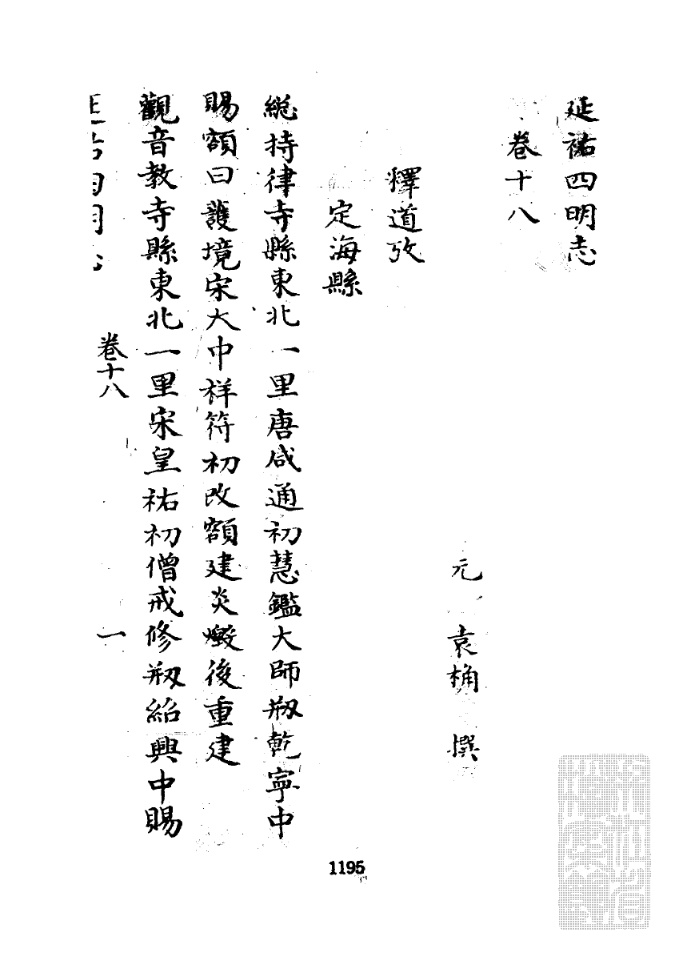 延祐四明志
卷十八
元 袁桷 撰
釋道攷
定海縣
緫持律寺縣東北一里唐咸通初慧鑑大師剏乾寧中
賜額曰護境宋大中祥符初改額建炎燬後重建
觀音教寺縣東北一里宋皇祐初僧戒修剏紹興中賜
延祐四明志 卷十八 一
1195